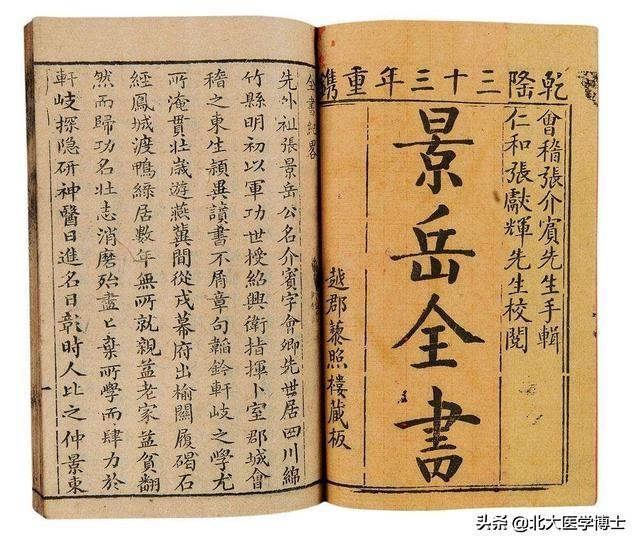 乾隆三十三年重鐫
會稽張介賓先生手輯
仁和張獻輝先生校閱
景岳全書
越郡藜照樓藏板
全書紀畧
先外祖張景岳公名介賓字會卿先世居四川綿
竹縣明初以軍功世授紹興衛指揮卜室郡城會
稽之東生頴異讀書不屑章句韜鈐軒岐之學尤
所淹貫壯歲遊燕冀間從戎幕府出榆關履碣石
經鳳城渡鴨綠居數年無所就親益老家益貧翻
然而歸功名壯志消磨殆盡棄所學而肆力於
軒岐探隐研神醫日進名日彰時人比之仲景東
头条 @北大医学博士